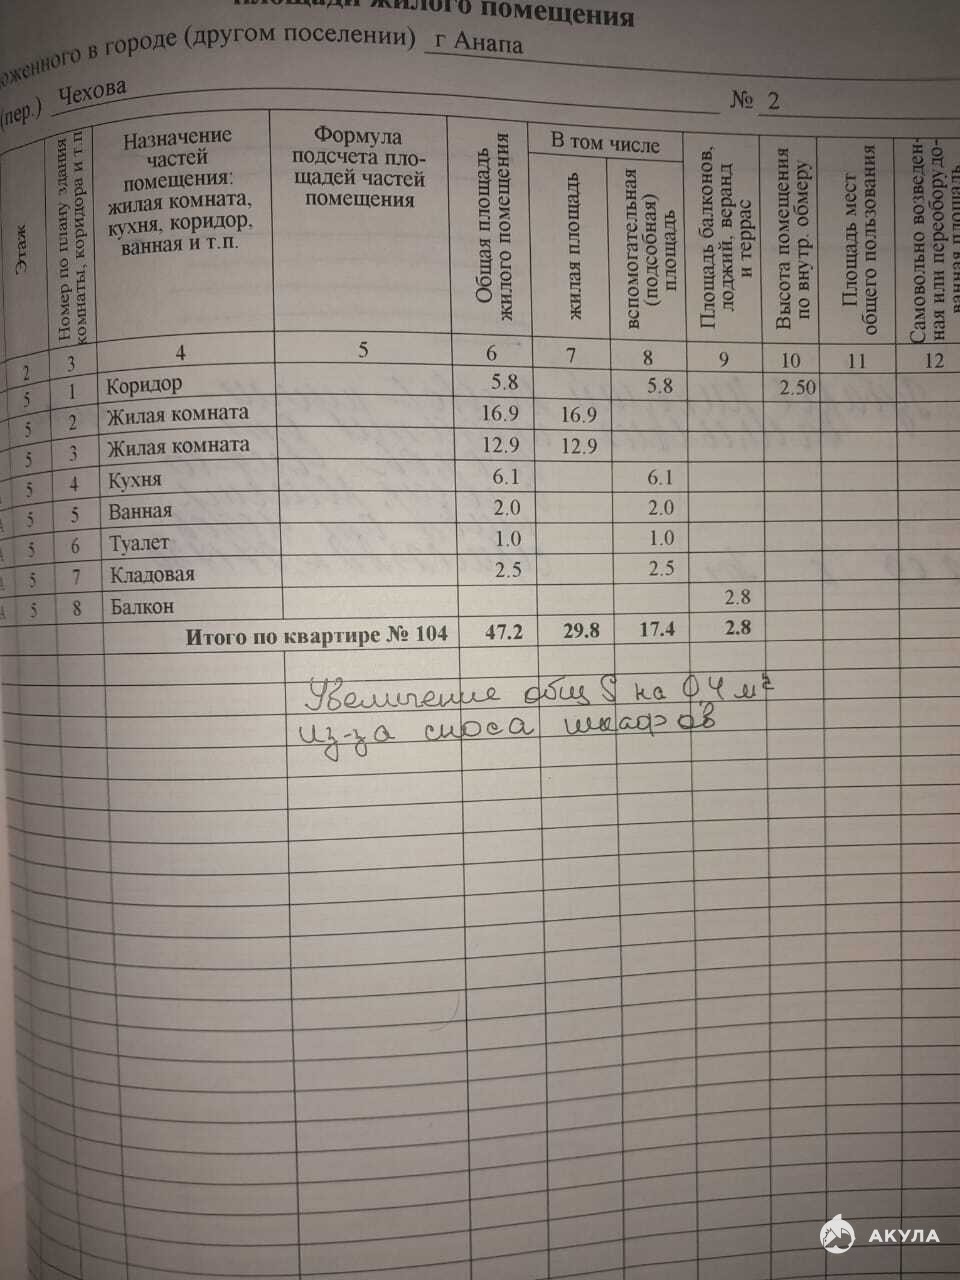 площади жилого помещения
оженного в городе (другом поселении) г Анапа
(пер.) Чехова № 2
Этаж
Номер по плану здания комнаты, коридора и т.п
Назначение частей помещения: жилая комната, кухня, коридор, ванная и т.п.
Формула подсчета пло-щадей частей помещения
Общая площадь жилого помещения
В том числе
жилая площадь
вспомогательная (подсобная) площадь
Площадь балконов, лоджий, веранд и террас
Высота помещения по внутр. обмеру
Площадь мест общего пользования
Самовольно возведен-ная или переоборудо-ванная площадь
2 3 4 5 6 7 8 9 10 11 12
5 1 Коридор 5.8 5.8 2.50
5 2 Жилая комната 16.9 16.9
5 3 Жилая комната 12.9 12.9
5 4 Кухня 6.1 6.1
А 5 5 Ванная 2.0 2.0
А 5 6 Туалет 1.0 1.0
А 5 7 Кладовая 2.5 2.5
А 5 8 Балкон 2.8
Итого по квартире № 104 47.2 29.8 17.4 2.8
Увеличение общ S на 0,4 м²
из-за сноса шкафов
АКУЛА